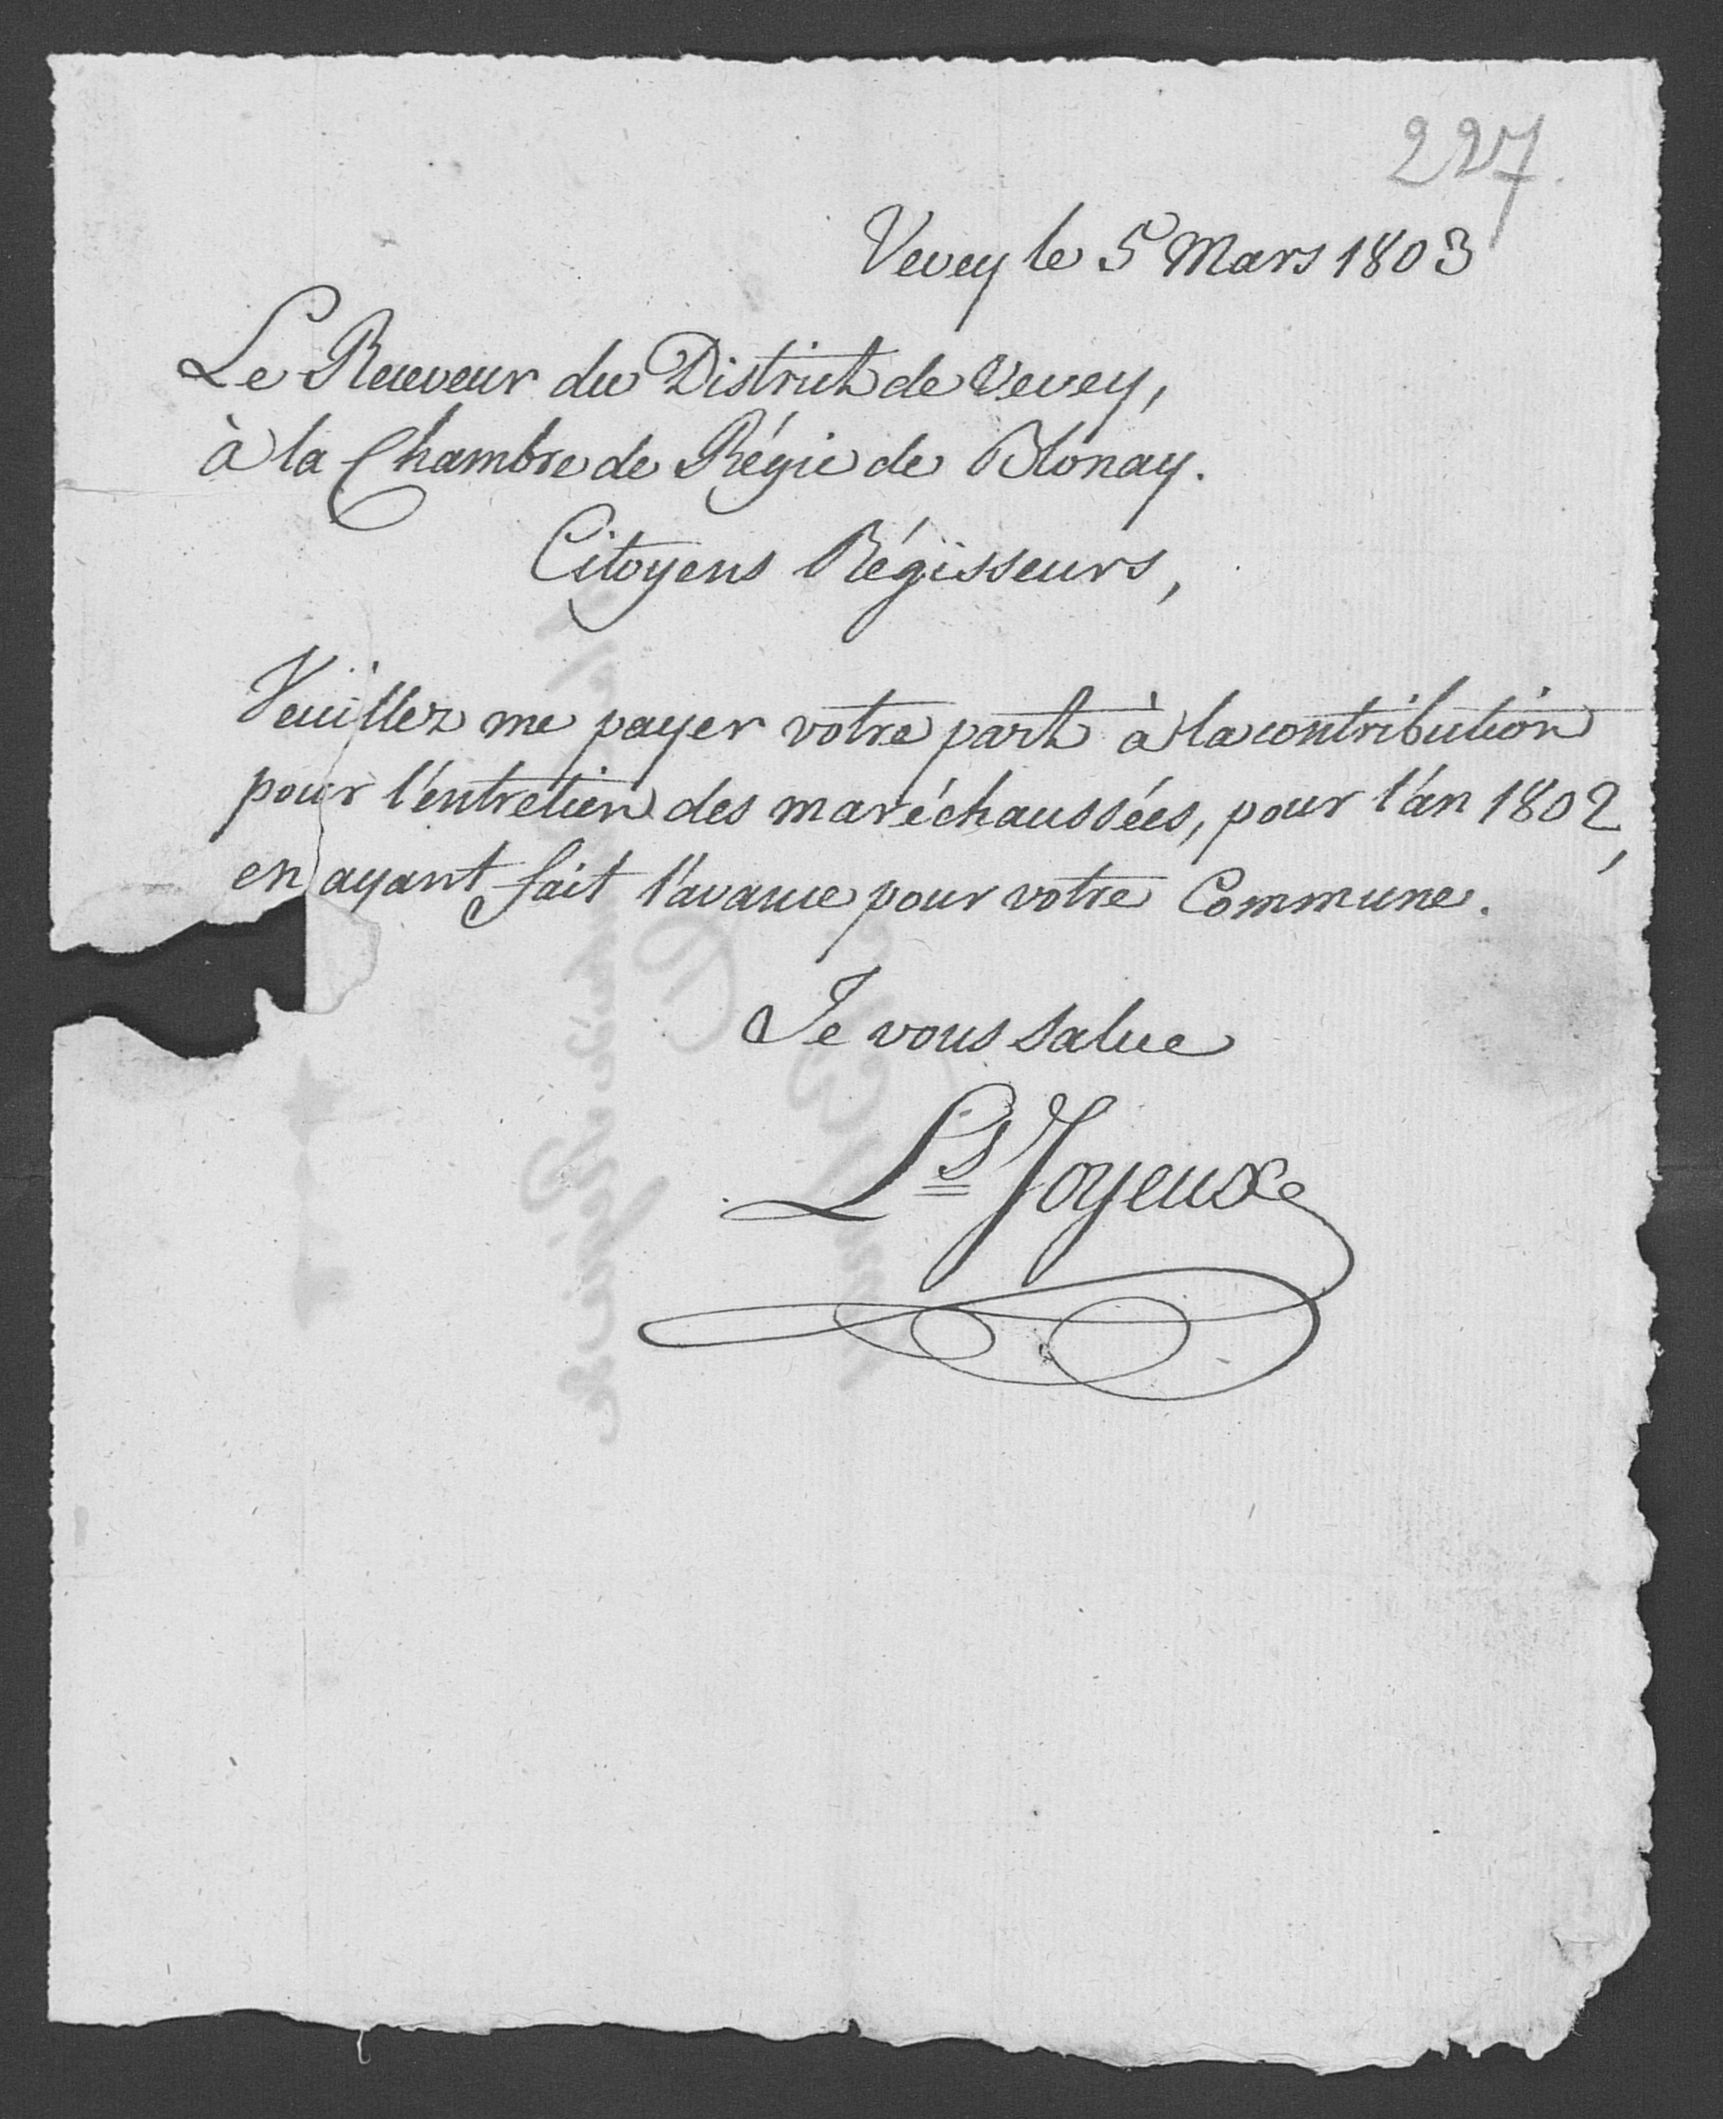 227.
Vevey le 5 Mars 1803
Le Receveur du District de Vevey,
à la Chambre de Régie de Blonay.
Citoyens Régisseurs,
Veuillez me payer votre part à la contribution
pour l'entretien des maréchaussées, pour l'an 1802,
en ayant fait l'avance pour votre Commune.
Je vous salue
Ls Joyeux